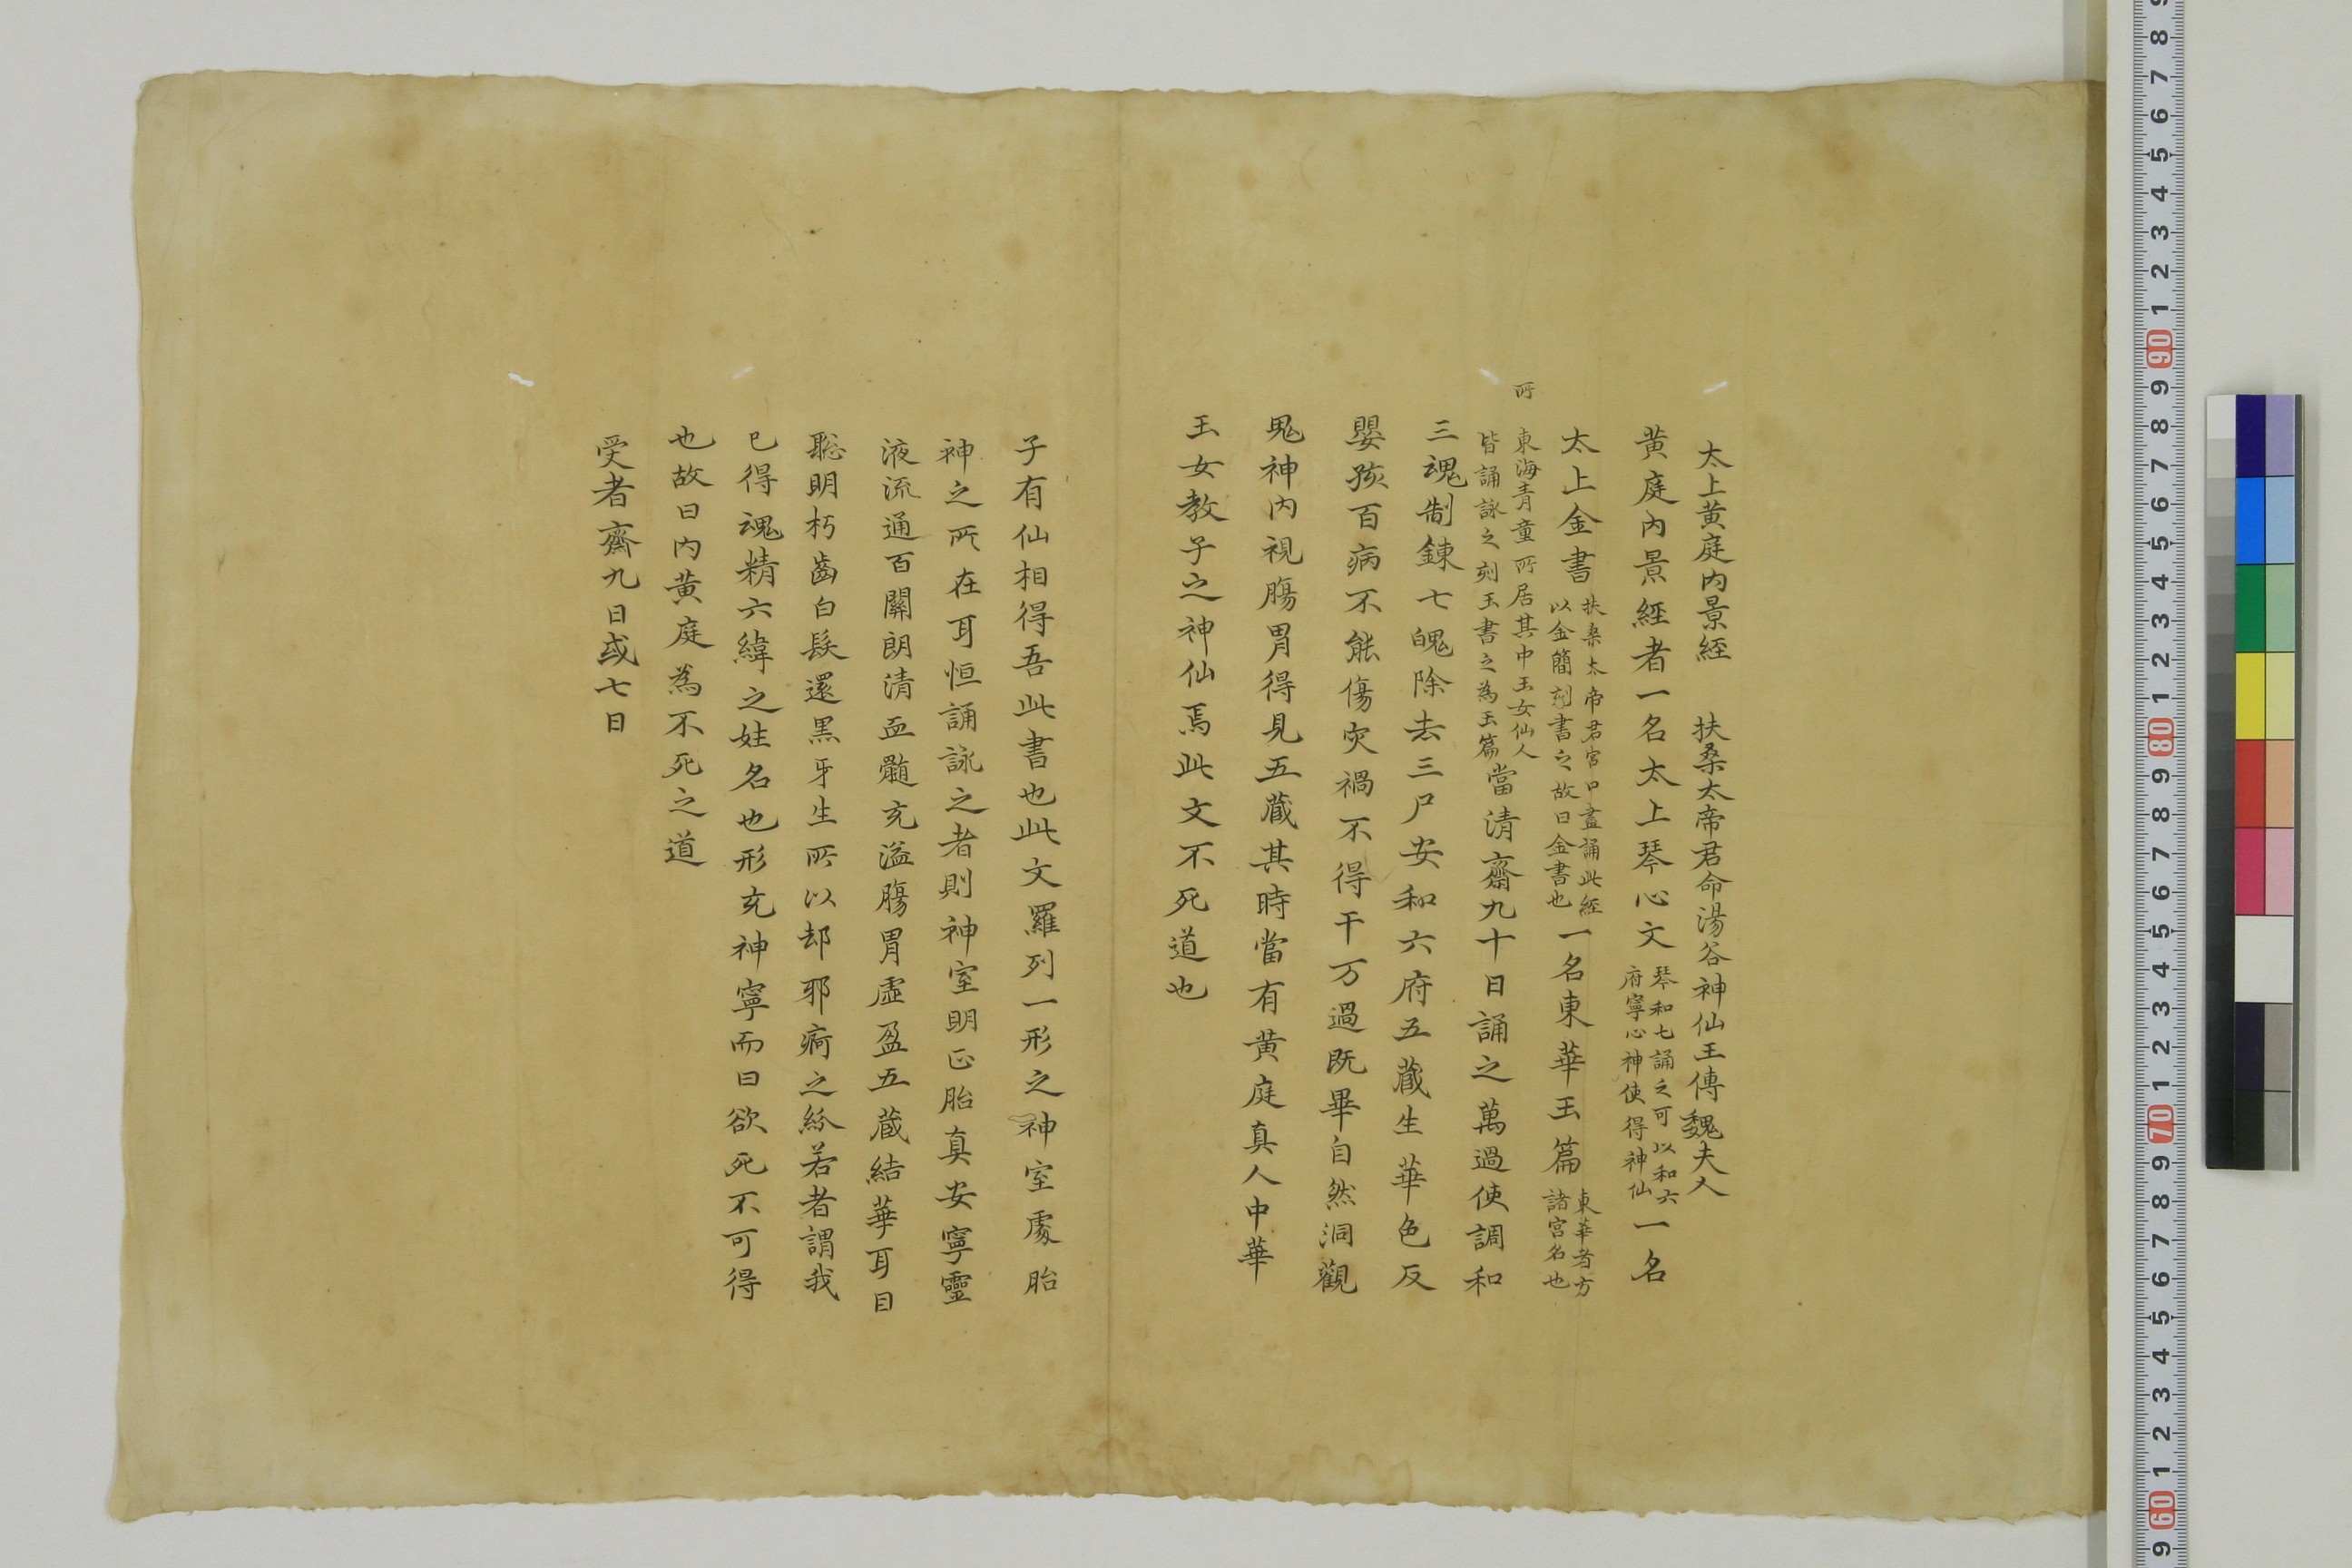 太上黄庭内景經　扶桑太帝君命湯谷神仙王傳魏夫人
黄庭内景經者一名太上琴心文琴和七誦之可以和六府寧心神使得神仙一名
太上金書扶桑太帝君宮中盡誦此經以金簡刻書之故曰金書也一名東華玉篇東華者方諸宮名也
所東海青童所居其中玉女仙人皆誦詠之刻玉書之為玉篇當清齋九十日誦之萬過使調和
三魂制錬七魄除去三尸安和六府五藏生華色反
嬰孩百病不能傷灾禍不得干万過既畢自然洞觀
鬼神内視膓胃得見五藏其時當有黄庭真人中華
玉女教子之神仙焉此文不死道也
子有仙相得吾此書也此文羅列一形之神室處胎
神之所在耳恒誦詠之者則神室明正胎真安寧靈
液流通百關朗清血髓充溢膓胃虚盈五藏結華耳目
聡明朽齒白髮還黒牙生所以却邪痾之紛若者謂我
已得魂精六緯之姓名也形充神寧而曰欲死不可得
也故曰内黄庭為不死之道
受者齋九日或七日
9 8 7 6 5 4 3 2 1 90 9 8 7 6 5 4 3 2 1 80 9 8 7 6 5 4 3 2 1 70 9 8 7 6 5 4 3 2 1 60 9